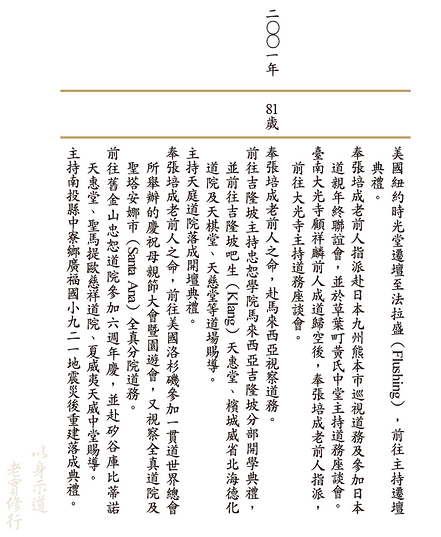 二〇〇一年
81歲
美國紐約時光堂遷壇至法拉盛（Flushing），前往主持遷壇
典禮。
奉張培成老前人指派赴日本九州熊本市巡視道務及參加日本
道親年終聯誼會，並於草葉町黃氏中堂主持道務座談會。
臺南大光寺顧祥麟前人成道歸空後，奉張培成老前人指派，
前往大光寺主持道務座談會。
奉張培成老前人之命，赴馬來西亞視察道務。
前往吉隆坡主持忠恕學院馬來西亞吉隆坡分部開學典禮，
並前往吉隆坡吧生（Klang）天惠堂、檳城威省北海德化
道院及天棋堂、天慈堂等道場賜導。
主持天庭道院落成開壇典禮。
奉張培成老前人之命，前往美國洛杉磯參加一貫道世界總會
所舉辦的慶祝母親節大會暨園遊會，又視察全真道院及
聖塔安娜市（Santa Ana）全真分院道務。
前往舊金山忠恕道院參加六週年慶，並赴矽谷庫比蒂諾
天惠堂、聖馬提歐慈祥道院、夏威夷天威中堂賜導。
主持南投縣中寮鄉廣福國小九二一地震災後重建落成典禮。
以身示道
老實修行